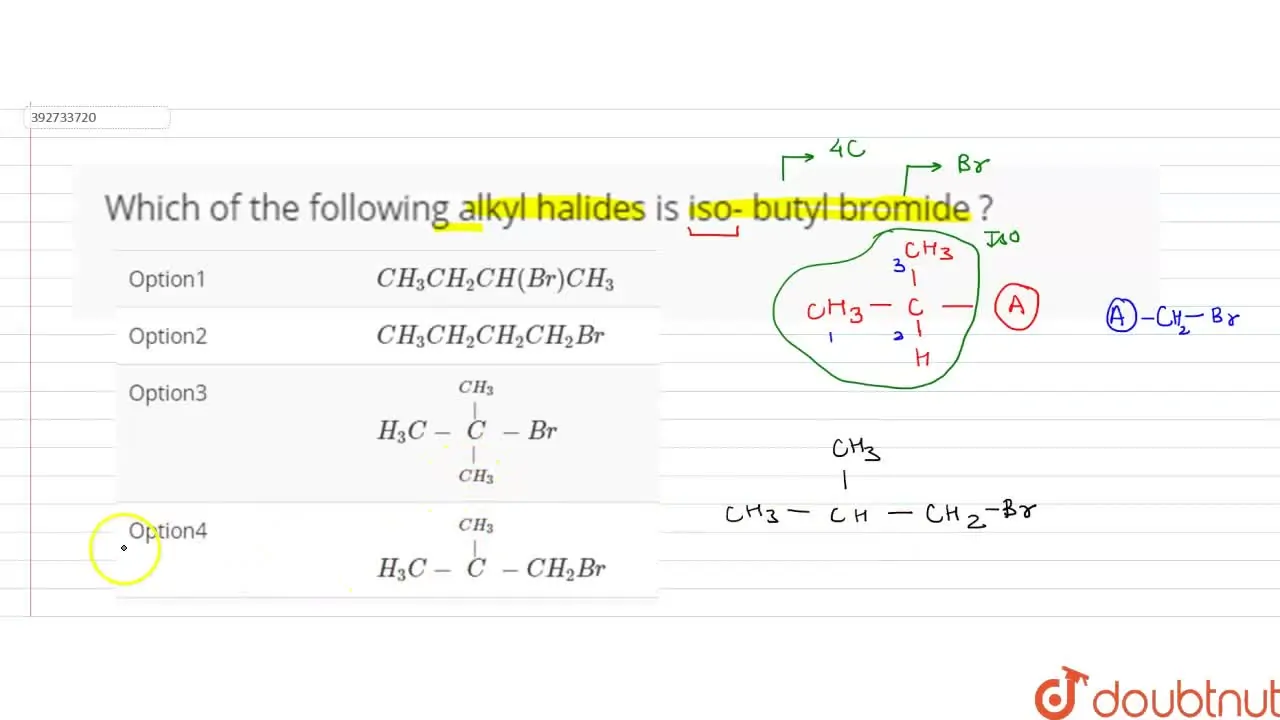 392733720
4C
Br
Which of the following alkyl halides is iso- butyl bromide ?
Iso
Option1 CH₃CH₂CH(Br)CH₃
Option2 CH₃CH₂CH₂CH₂Br
Option3
CH₃
|
H₃C − C − Br
|
CH₃
Option4
CH₃
|
H₃C − C − CH₂Br
CH₃
3
|
CH₃ — C — A
1 2
|
H
A — CH₂ — Br
CH₃
|
CH₃ — CH — CH₂ — Br
doubtnut